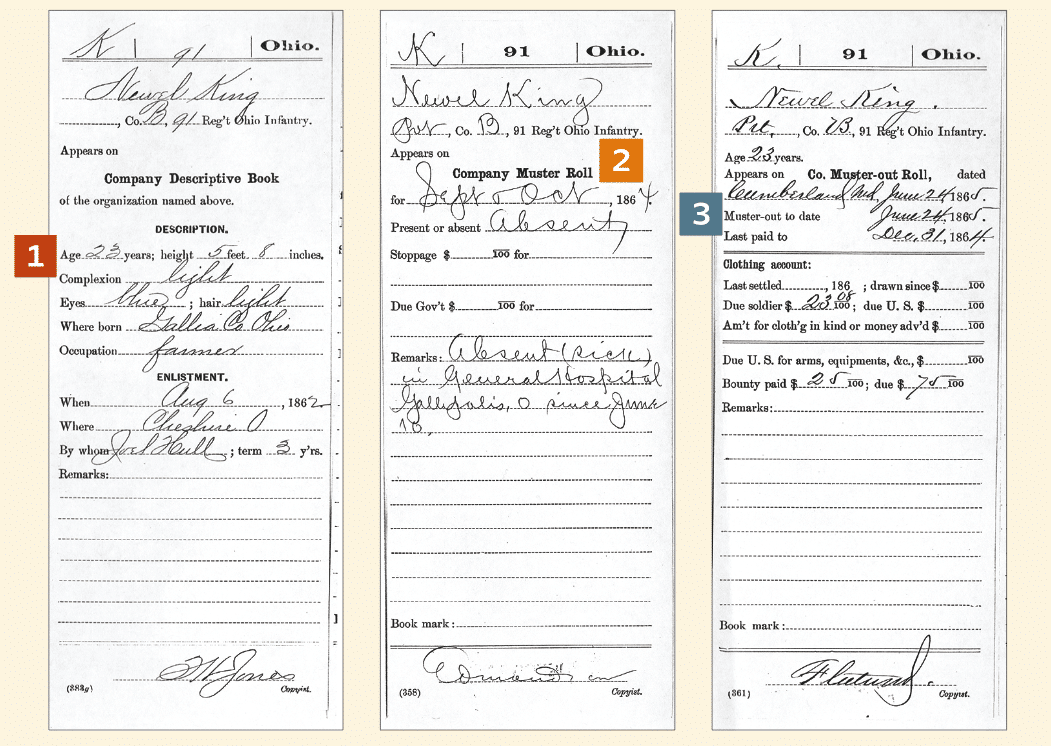 K | 91 | Ohio.
Newel King
, Co. B, 91 Reg't Ohio Infantry.
Appears on
Company Descriptive Book
of the organization named above.
DESCRIPTION.
1
Age 23 years; height 5 feet 8 inches.
Complexion light
Eyes blue ; hair light
Where born Gallia Co Ohio
Occupation farmer
ENLISTMENT.
When Aug 6 , 1862
Where Cheshire O
By whom Joel Hull ; term 3 y'rs.
Remarks:
Jones
(383g) Copyist.
K | 91 | Ohio.
Newel King
Pvt , Co. B, 91 Reg't Ohio Infantry.
2
Appears on
Company Muster Roll
for Sept & Oct , 1864.
Present or absent Absent
Stoppage $ 100 for
Due Gov't $ 100 for
Remarks: Absent (sick)
in General Hospital
Gallipolis, O since June
10,
Book mark:
(358) Copyist.
K. | 91 | Ohio.
Newel King.
Pvt, , Co. B, 91 Reg't Ohio Infantry.
Age 23 years.
Appears on Co. Muster-out Roll, dated
3
Cumberland Md, June 24, 1865.
Muster-out to date June 24, 1865.
Last paid to Dec, 31, 1864.
Clothing account:
Last settled , 186 ; drawn since $ 100
Due soldier $ 23 08 100; due U. S. $ 100
Am't for cloth'g in kind or money adv'd $ 100
Due U. S. for arms, equipments, &c., $ 100
Bounty paid $ 25 100; due $ 75 100
Remarks:
Book mark:
(361) Copyist.